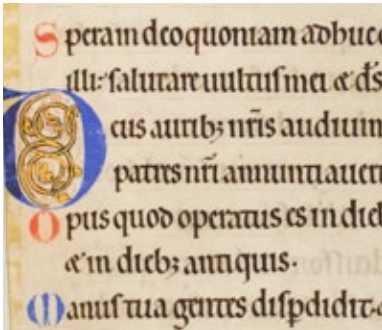 Spera in deo quoniam adhuc c
illi: salutare uultus mei & ds̄
Deus aurib; nr̄is audiuim
patres nr̄i annuntiauer
Opus quod operatus es in dieb
& in dieb; antiquis.
Manus tua gentes disp̄didit &